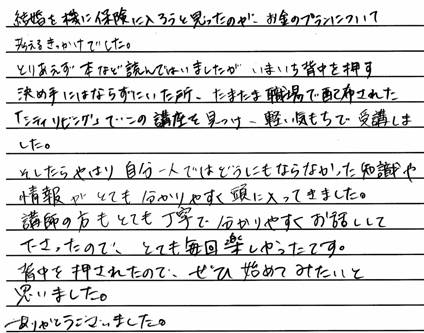 結婚を機に保険に入ろうと思ったのが、お金のプランについて
考えるきっかけでした。
とりあえず本など読んではいましたがいまいち背中を押す
決め手にはならずにいた所、たまたま職場で配布された
「シティリビング」でこの講座を見つけ、軽い気もちで受講しま
した。
そしたらやはり自分一人ではどうにもならなかった知識や
情報がとても分かりやすく頭に入ってきました。
講師の方もとても丁寧で分かりやすくお話しして
下さったので、とても毎回楽しかったです。
背中を押されたので、ぜひ始めてみたいと
思いました。
ありがとうございました。